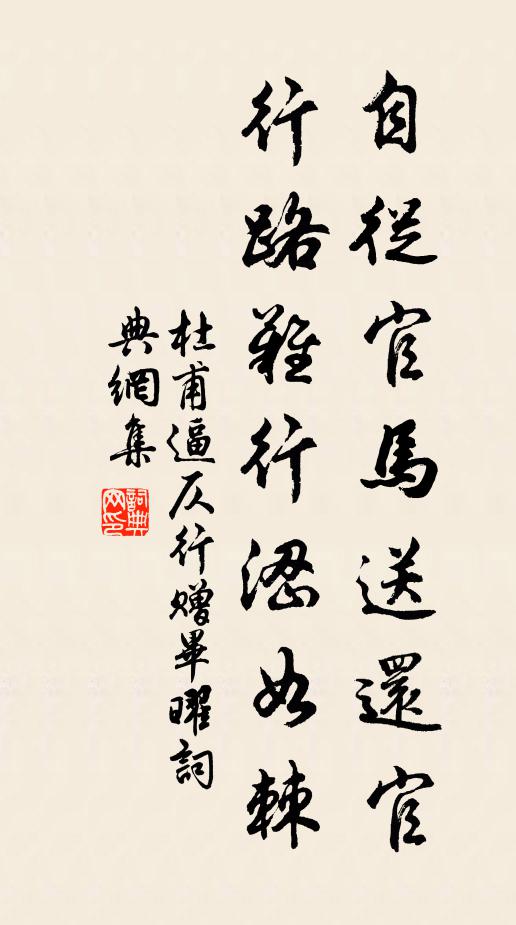 自從官馬送還官
行路難行澀如棘
杜甫逼仄行贈畢曜詞
典網集
詞典
网印